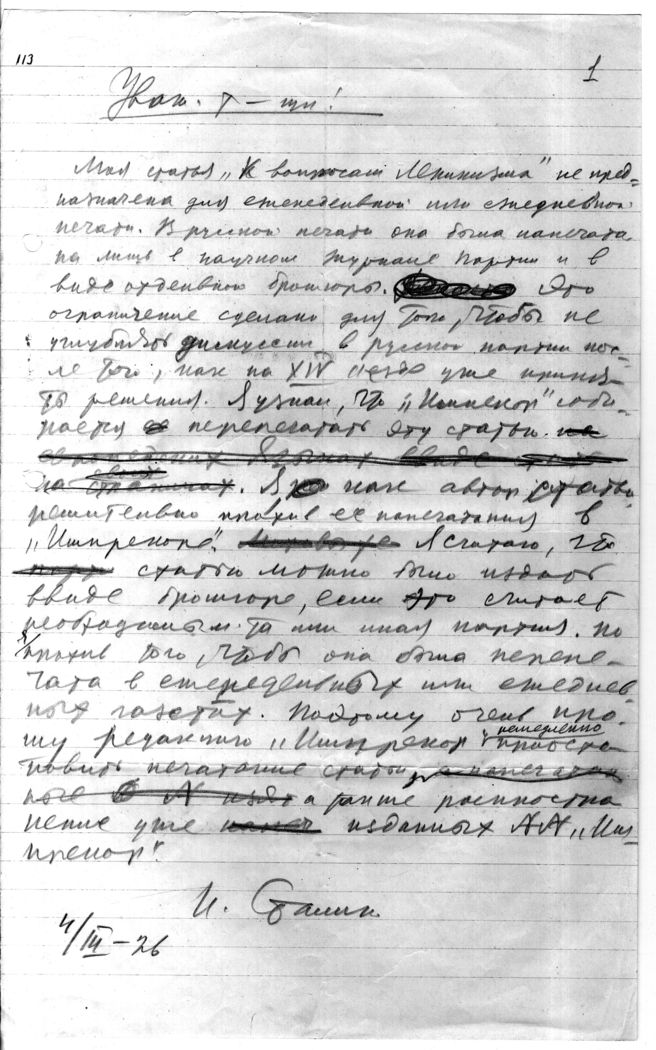 113
1
Уваж. т-щи!
Моя статья „К вопросам Ленинизма" не пред=
назначена для еженедельной или ежедневной
печати. В русской печати она была напечата
на лишь в научном журнале партии и в
виде отдельной брошюры. Это
ограничение сделано для того, чтобы не
углублять дискуссии в русской партии пос-
ле того, как на XIV съезде уже приня-
ты решения. Я узнал, что „Инпрекор" соби-
рается перепечатать эту статью
на своих страницах. Я как автор статьи
решительно против ее напечатания в
„Инпрекоре". Я считаю, что
статью можно было издать
ввиде брошюры, если это считает
необходимым та или иная партия. Но
я против того, чтобы она была перепе-
чата в еженедельных или ежеднев-
ных газетах. Поэтому очень про-
шу редакцию „Инпрекор"
немедленно
приоста
новить печатание статьи
а также распростра
нение уже изданных №№ „Ин-
прекор".
И. Сталин
4/III-26